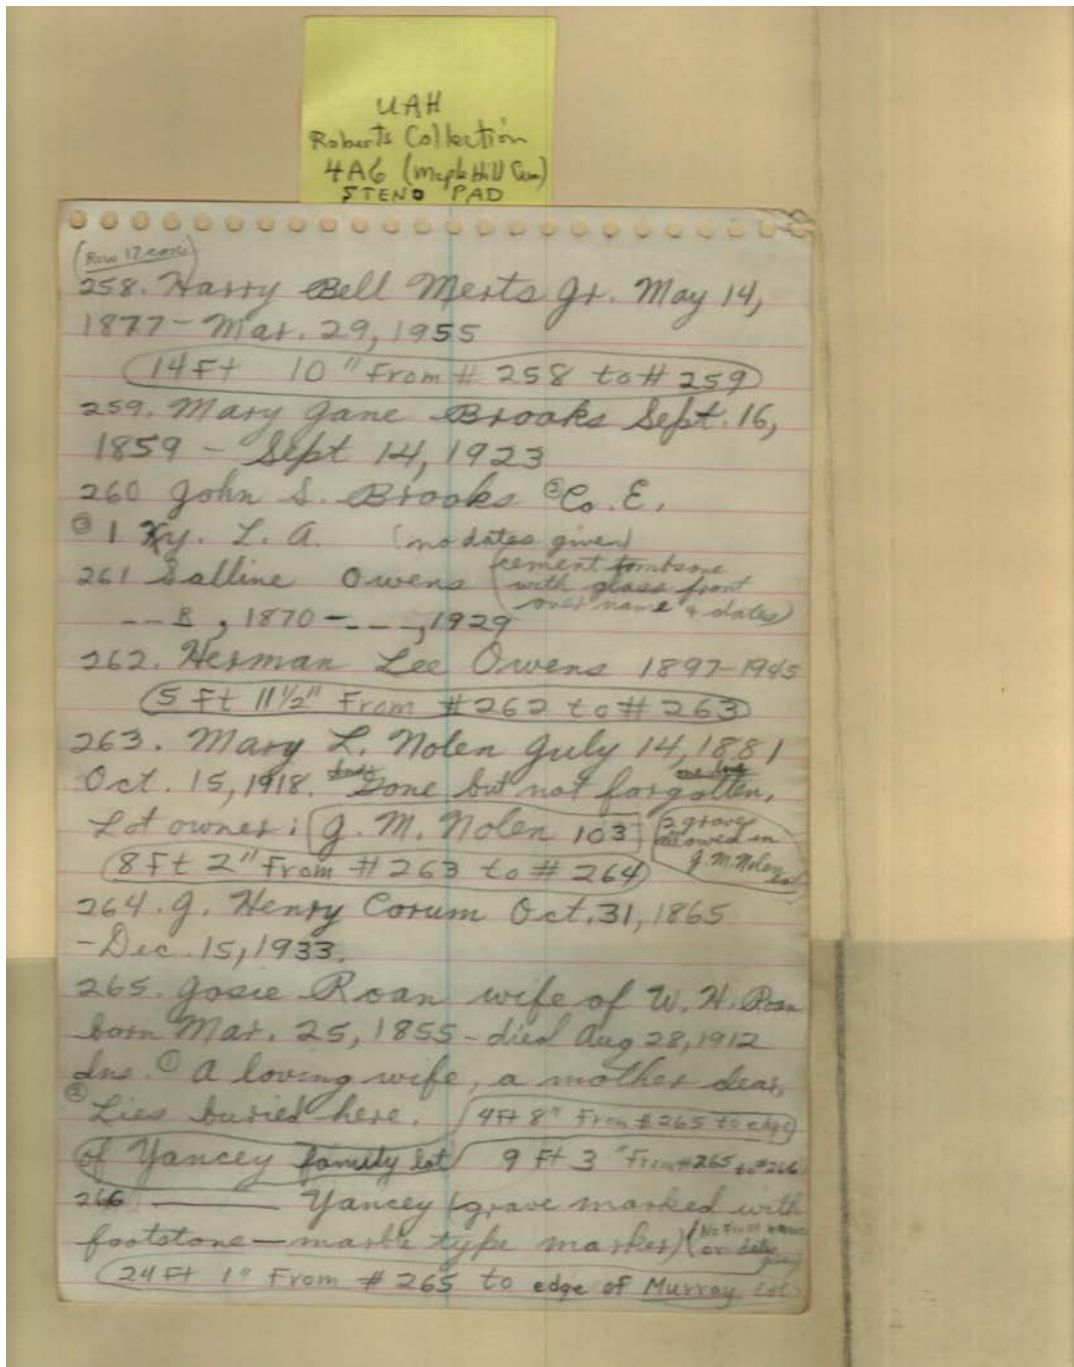 UAH
Roberts Collection
4A6 (Maple Hill Cem)
STENO PAD
(Row 17 cont)
258. Harry Bell Merts Jr. May 14,
1877 - Mar. 29, 1955
14 Ft 10" From # 258 to # 259
259. Mary Jane Brooks Sept. 16,
1859 - Sept 14, 1923
260 John S. Brooks ② Co. E.
③ 1 Ky. L. A. (no dates given)
261 Salline Owens (cement tombsone
with glass front
over name & dates)
-- 8, 1870 - ---, 1929
262. Herman Lee Owens 1897-1945
5 Ft 11 1/2" From # 262 to # 263
263. Mary L. Nolen July 14, 1881
Oct. 15, 1918. Gone but not forgotten,
Lot owner: J. M. Nolen 103 2 graves
allowed in
J. M. Nolen lot
8 Ft 2" From # 263 to # 264
264. J. Henry Corum Oct. 31, 1865
- Dec. 15, 1933.
265. Josie Roan wife of W. H. Roan
born Mar. 25, 1855 - died Aug 28, 1912
Ins. ① A loving wife, a mother dear,
② Lies buried here. 4 Ft 8" From # 265 to edge
of Yancey family lot 9 Ft 3" From # 265 to # 266
266 ——— Yancey (grave marked with
footstone — marble type marker) (No first name
or date given)
24 Ft 1" From # 265 to edge of Murray Lot